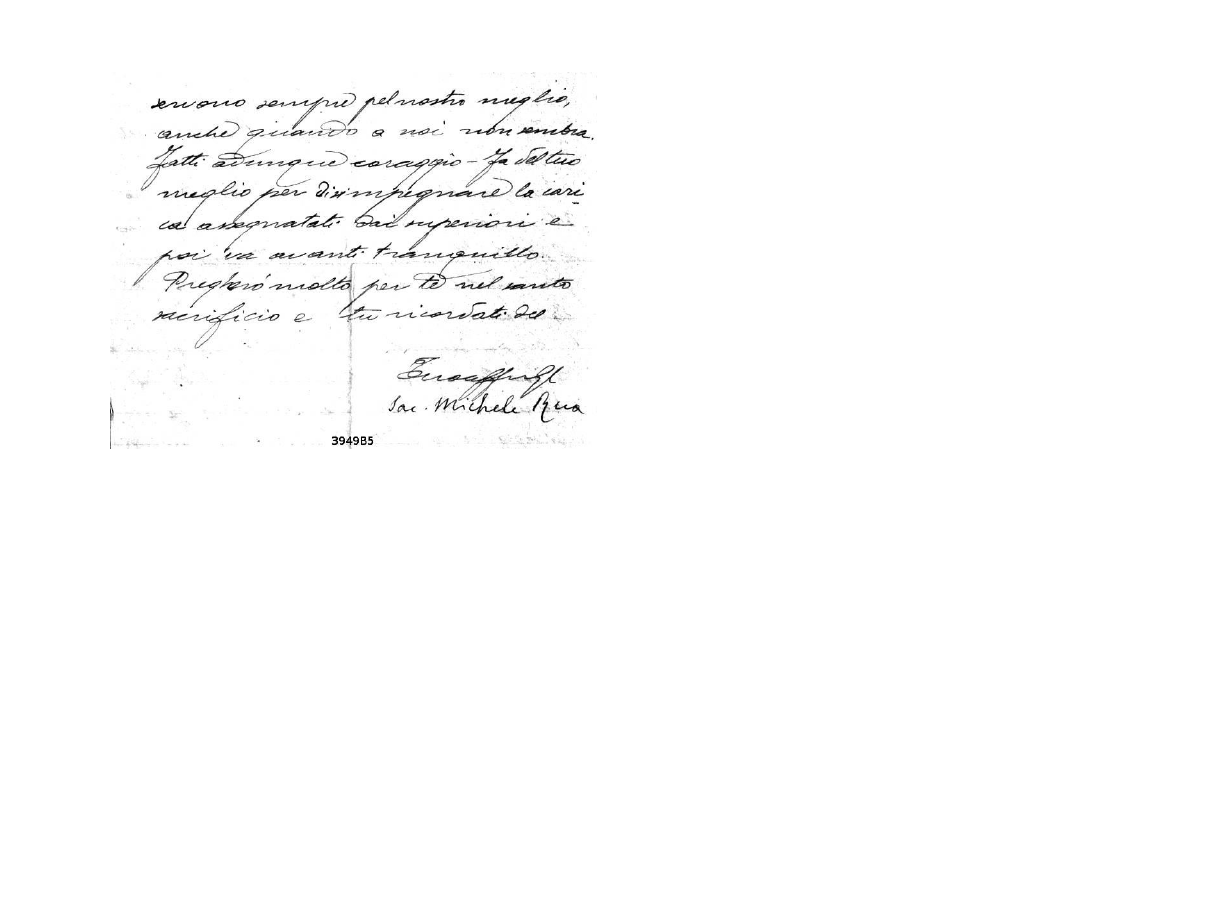 servono sempre pel nostro meglio,
anche quando a noi non sembra.
Fatti adunque coraggio - Fa del tuo
meglio per disimpegnare la cari-
ca assegnatati dai superiori e
poi va avanti tranquillo.
Pregherò molto per te nel santo
sacrificio e tu ricordati del
Tuo aff in G C
Sac. Michele Rua
3949B5